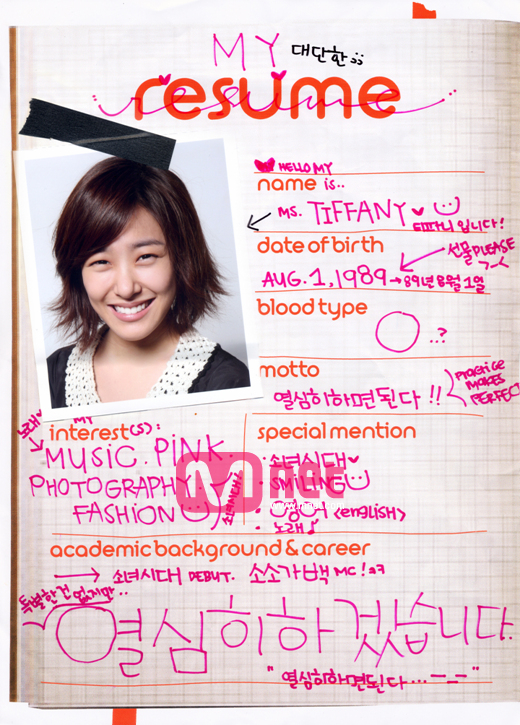 MY 대단한
resume
resume
HELLO MY
name is..
MS. TIFFANY
티파니 입니다!
date of birth
선물 PLEASE
AUG. 1, 1989 → 89년 8월 1일
blood type
O ..?
motto
열심히하면된다 !!
PRACTICE MAKES PERFECT
노래
MY
interest(s):
MUSIC. PINK
PHOTOGRAPHY
FASHION
special mention
· 쇠녀시대
· SMILING
· 영어 <english>
· 노래♪
Mnet
academic background & career
→ 쇠녀시대 DEBUT. 소소가백 MC!
특별한건 없지만..
열심히하겠습니다.
"열심히하면된다... -_-"